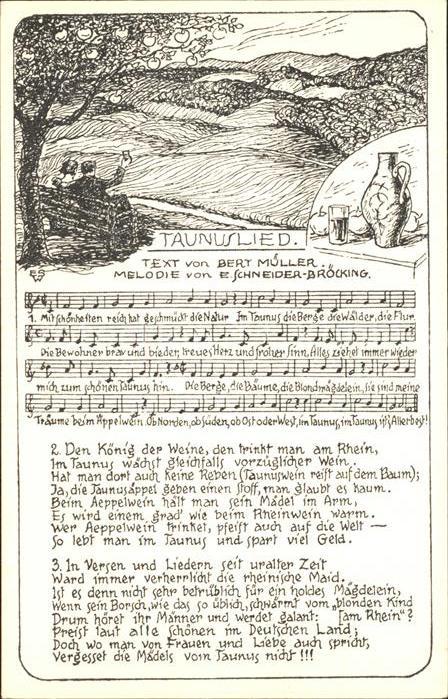 TAUNUSLIED.
TEXT von BERT MÜLLER
MELODIE von E. SCHNEIDER-BRÖCKING.
1. Mit Schönheiten reich hat geschmückt die Natur Im Taunus die Berge die Wälder, die Flur
Die Bewohner brav und bieder, treues Herz und froher Sinn, Alles ziehet immer wieder
mich zum schönen Taunus hin. Die Berge, die Bäume, die Blondmägdelein, sie sind meine
Träume beim Äppelwein Ob Norden, ob Süden, ob Ost oder West, im Taunus, im Taunus ist's Allerbest!
2. Den König der Weine, den trinkt man am Rhein,
Im Taunus wächst gleichfalls vorzüglicher Wein.
Hat man dort auch keine Reben (Taunuswein reift auf dem Baum);
Ja, die Taunusäppel geben einen Stoff, man glaubt es kaum.
Beim Aeppelwein hält man sein Mädel im Arm,
Es wird einem grad wie beim Rheinwein warm.
Wer Aeppelwein trinket, pfeift auch auf die Welt —
So lebt man im Taunus und spart viel Geld.
3. In Versen und Liedern seit uralter Zeit
Ward immer verherrlicht die rheinische Maid.
Ist es denn nicht sehr betrüblich für ein holdes Mägdelein,
Wenn sein Borsch, wie das so üblich, schwärmt vom „blonden Kind
Drum höret ihr Männer und werdet galant: [am Rhein"?
Preist laut alle Schönen im Deutschen Land;
Doch wo man von Frauen und Liebe auch spricht,
Vergesset die Mädels vom Taunus nicht!!!
ES